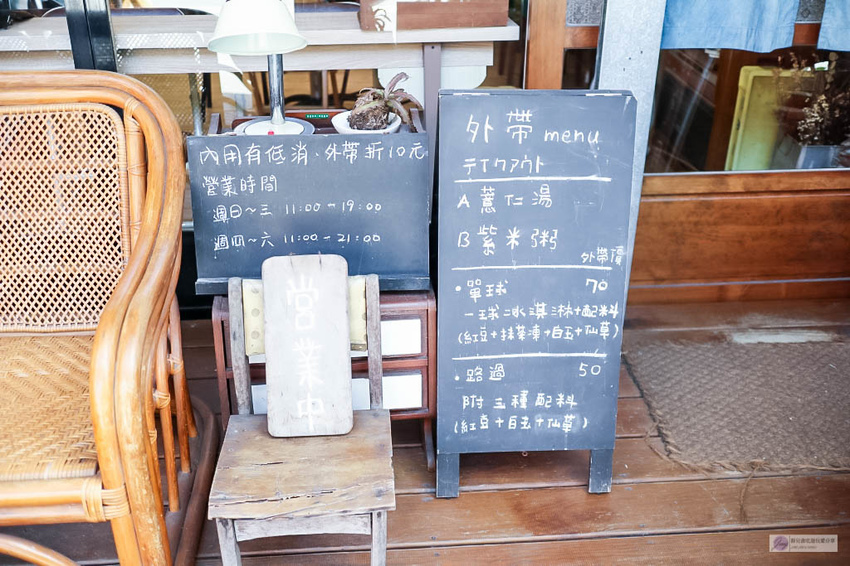 內用有低消、外帶折10元
營業時間
週日~三 11:00~19:00
週四~六 11:00~21:00
營業中
外帶 menu
テイクアウト
A 薏仁湯
B 紫米粥
外帶價
・單球 70
一球冰淇淋+配料
(紅豆+抹茶凍+白玉+仙草)
・路過 50
附三種配料
(紅豆+白玉+仙草)